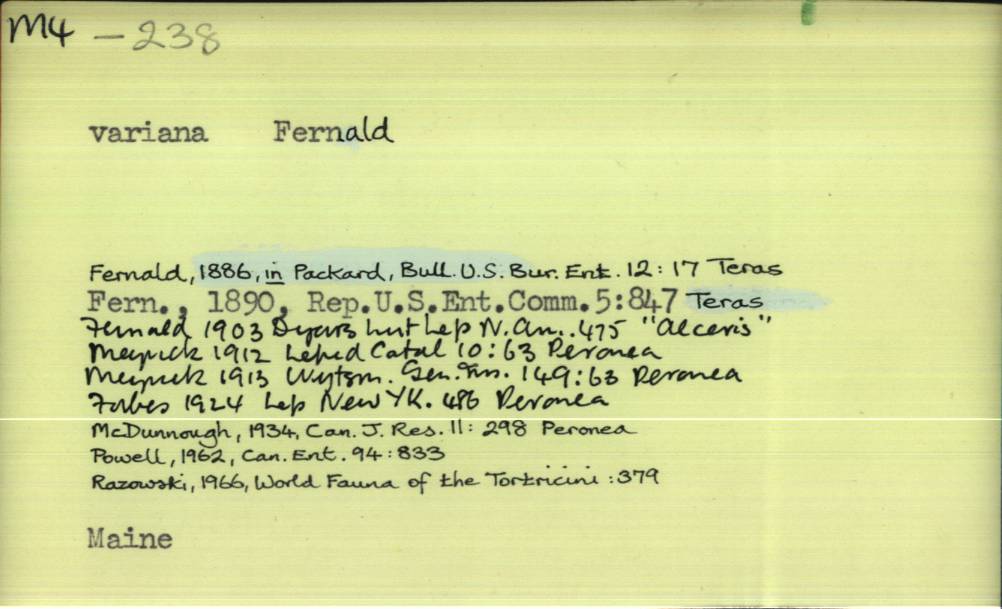 M4 - 238
variana Fernald
Fernald, 1886, in Packard, Bull. U.S. Bur. Ent. 12: 17 Teras
Fern., 1890, Rep.U.S.Ent.Comm.5:847 Teras
Fernald 1903 Dyars List Lep N. Am. 475 "Alceris"
Meyrick 1912 Lepid Catal 10: 63 Peronea
Meyrick 1913 Wytsm. Gen. Ins. 149: 63 Peronea
Forbes 1924 Lep New YK. 486 Peronea
McDunnough, 1934, Can. J. Res. 11: 298 Peronea
Powell, 1962, Can. Ent. 94: 833
Razowski, 1966, World Fauna of the Tortricini: 379
Maine